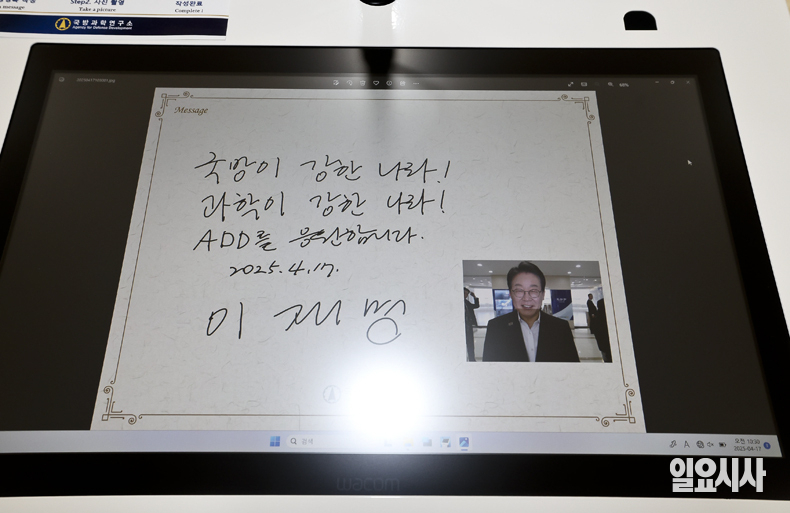 Step2. 사진 촬영
작성완료
message
Take a picture
Complete i
국방과학연구소
Agency for Defense Development
Message
국방이 강한 나라!
과학이 강한 나라!
ADD를 응원합니다.
2025.4.17.
이재명
검색
2025-04-17
wacom
일요시사